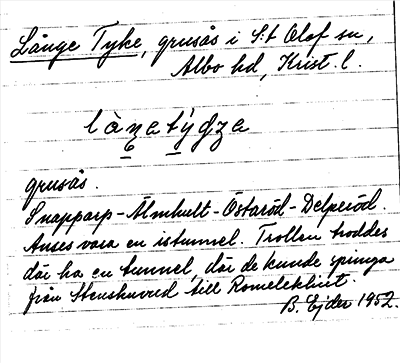 Långe Tyke, grusås i S:t Olof sn,
Albo hd, Krist. l.
grusås.
Snapparp-Älmhult-Östaröd-Delperöd.
Anses vara en istunnel. Trollen troddes
där ha en tunnel, där de kunde springa
från Stenshuvud till Romeleklint.
B. Ejder 1952.